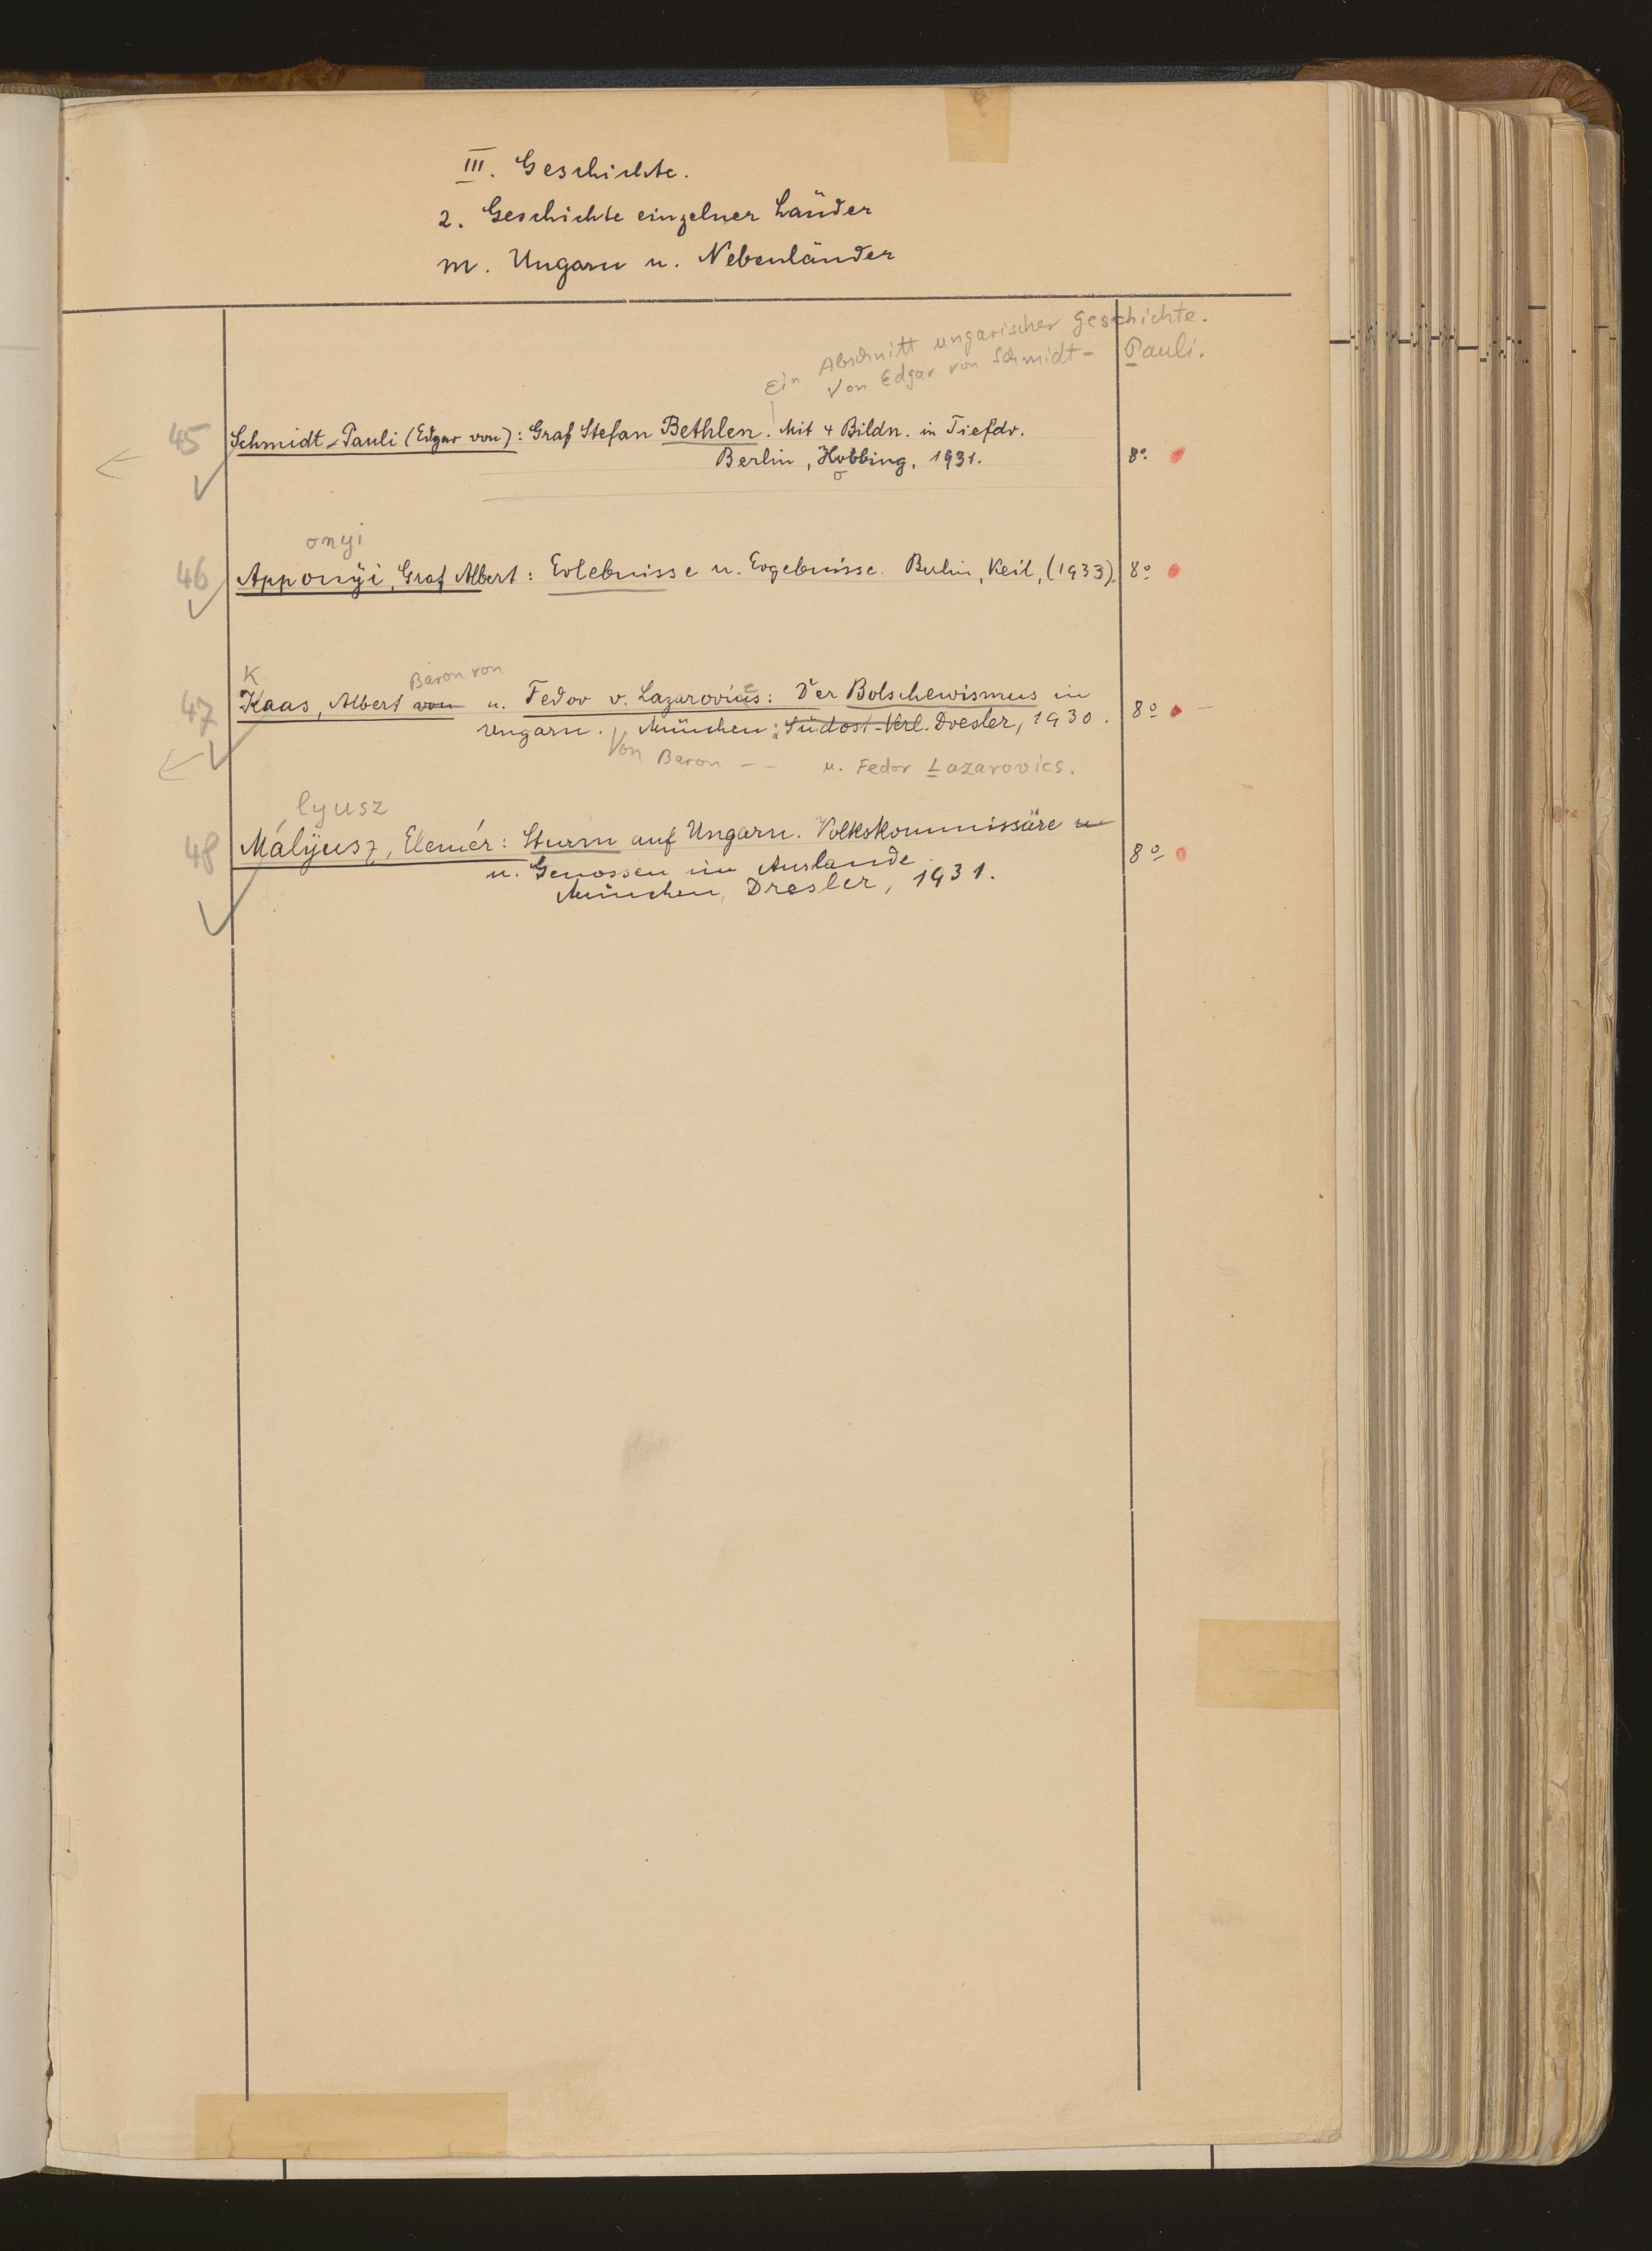 III. Geschichte.
2. Geschichte einzelner Länder
m. Ungarn u. Nebenländer
Ein Abschnitt ungarischer Geschichte.
Von Edgar von Schmidt-Pauli.
45 Schmidt-Pauli (Edgar von): Graf Stefan Bethlen. Mit 4 Bildn. in Tiefdr.
Berlin, Hobbing, 1931. 8°
o
onyi
46 Apponyi, Graf Albert: Erlebnisse u. Ergebnisse. Berlin, Keil, (1933). 8°
K Baron von
47 Kaas, Albert von u. Fedor v. Lazarovics: Der Bolschewismus in
Ungarn. München: Südost-Verl. Dresler, 1930. 8° –
Von Baron – – u. Fedor Lazarovics.
lyusz
48 Mályusz, Elemér: Sturm auf Ungarn. Volkskommissäre u
u. Genossen im Auslande.
München, Dresler, 1931. 8°